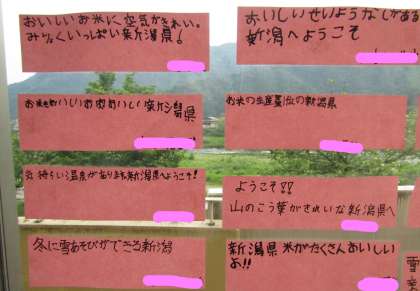 おいしいお米に空気がきれい。
みりょくいっぱい新潟県!
おいしいせいようなしがある
新潟へようこそ
お米もおいしいお肉もおいしい新潟県
お米の生産量1位の新潟県
気持ちいい温泉があります新潟県へようこそ!
ようこそ!!
山のこう葉がきれいな新潟県へ
冬に雪あそびができる新潟
新潟県米がたくさんおいしい
よ!!
雪